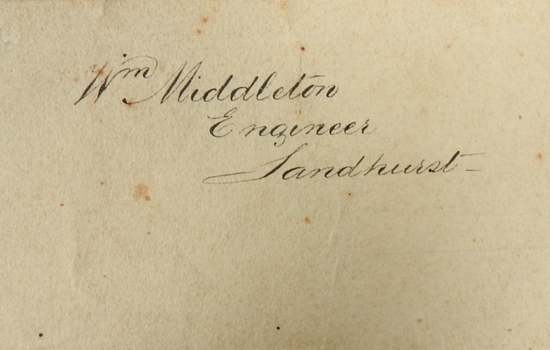 Wm Middleton
Engineer
Sandhurst